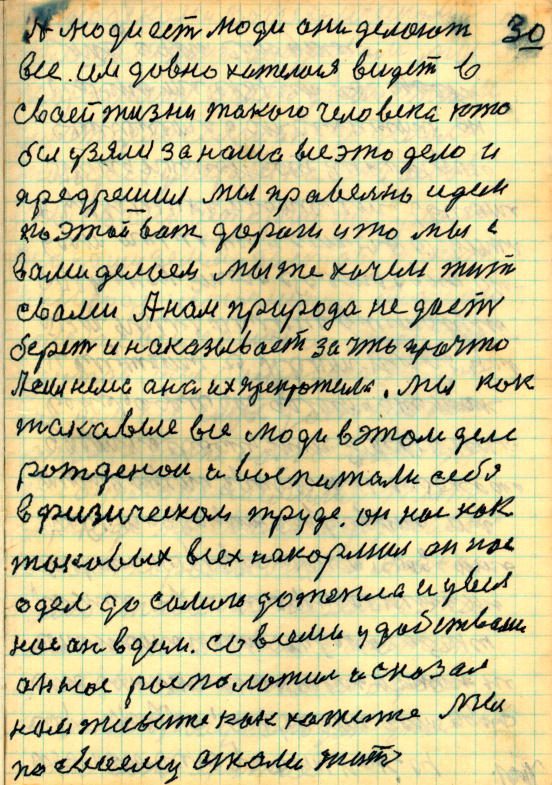 А люди ест люди они делоют 30
все. им довно хателося видет в
своей жизни такого человека кто
бы узяли за наша все это дело и
предрешил мы правелнь идем
по этой вот дороги и то мы с
вами делоем мы же хочем жит
свами А нам природа не даеть
берет и наказывает за что про что
она их . мы как
такавые все люди вэтом деле
рожденои и воспитали себя
вфизическом труде. он нос как
токовых всех накормил он нос
одел до самого дотепла и увел
нос он вдом. со всеми удобствами
он нос росположил и сказал
ном живите как хатите мы
по своему стали жить